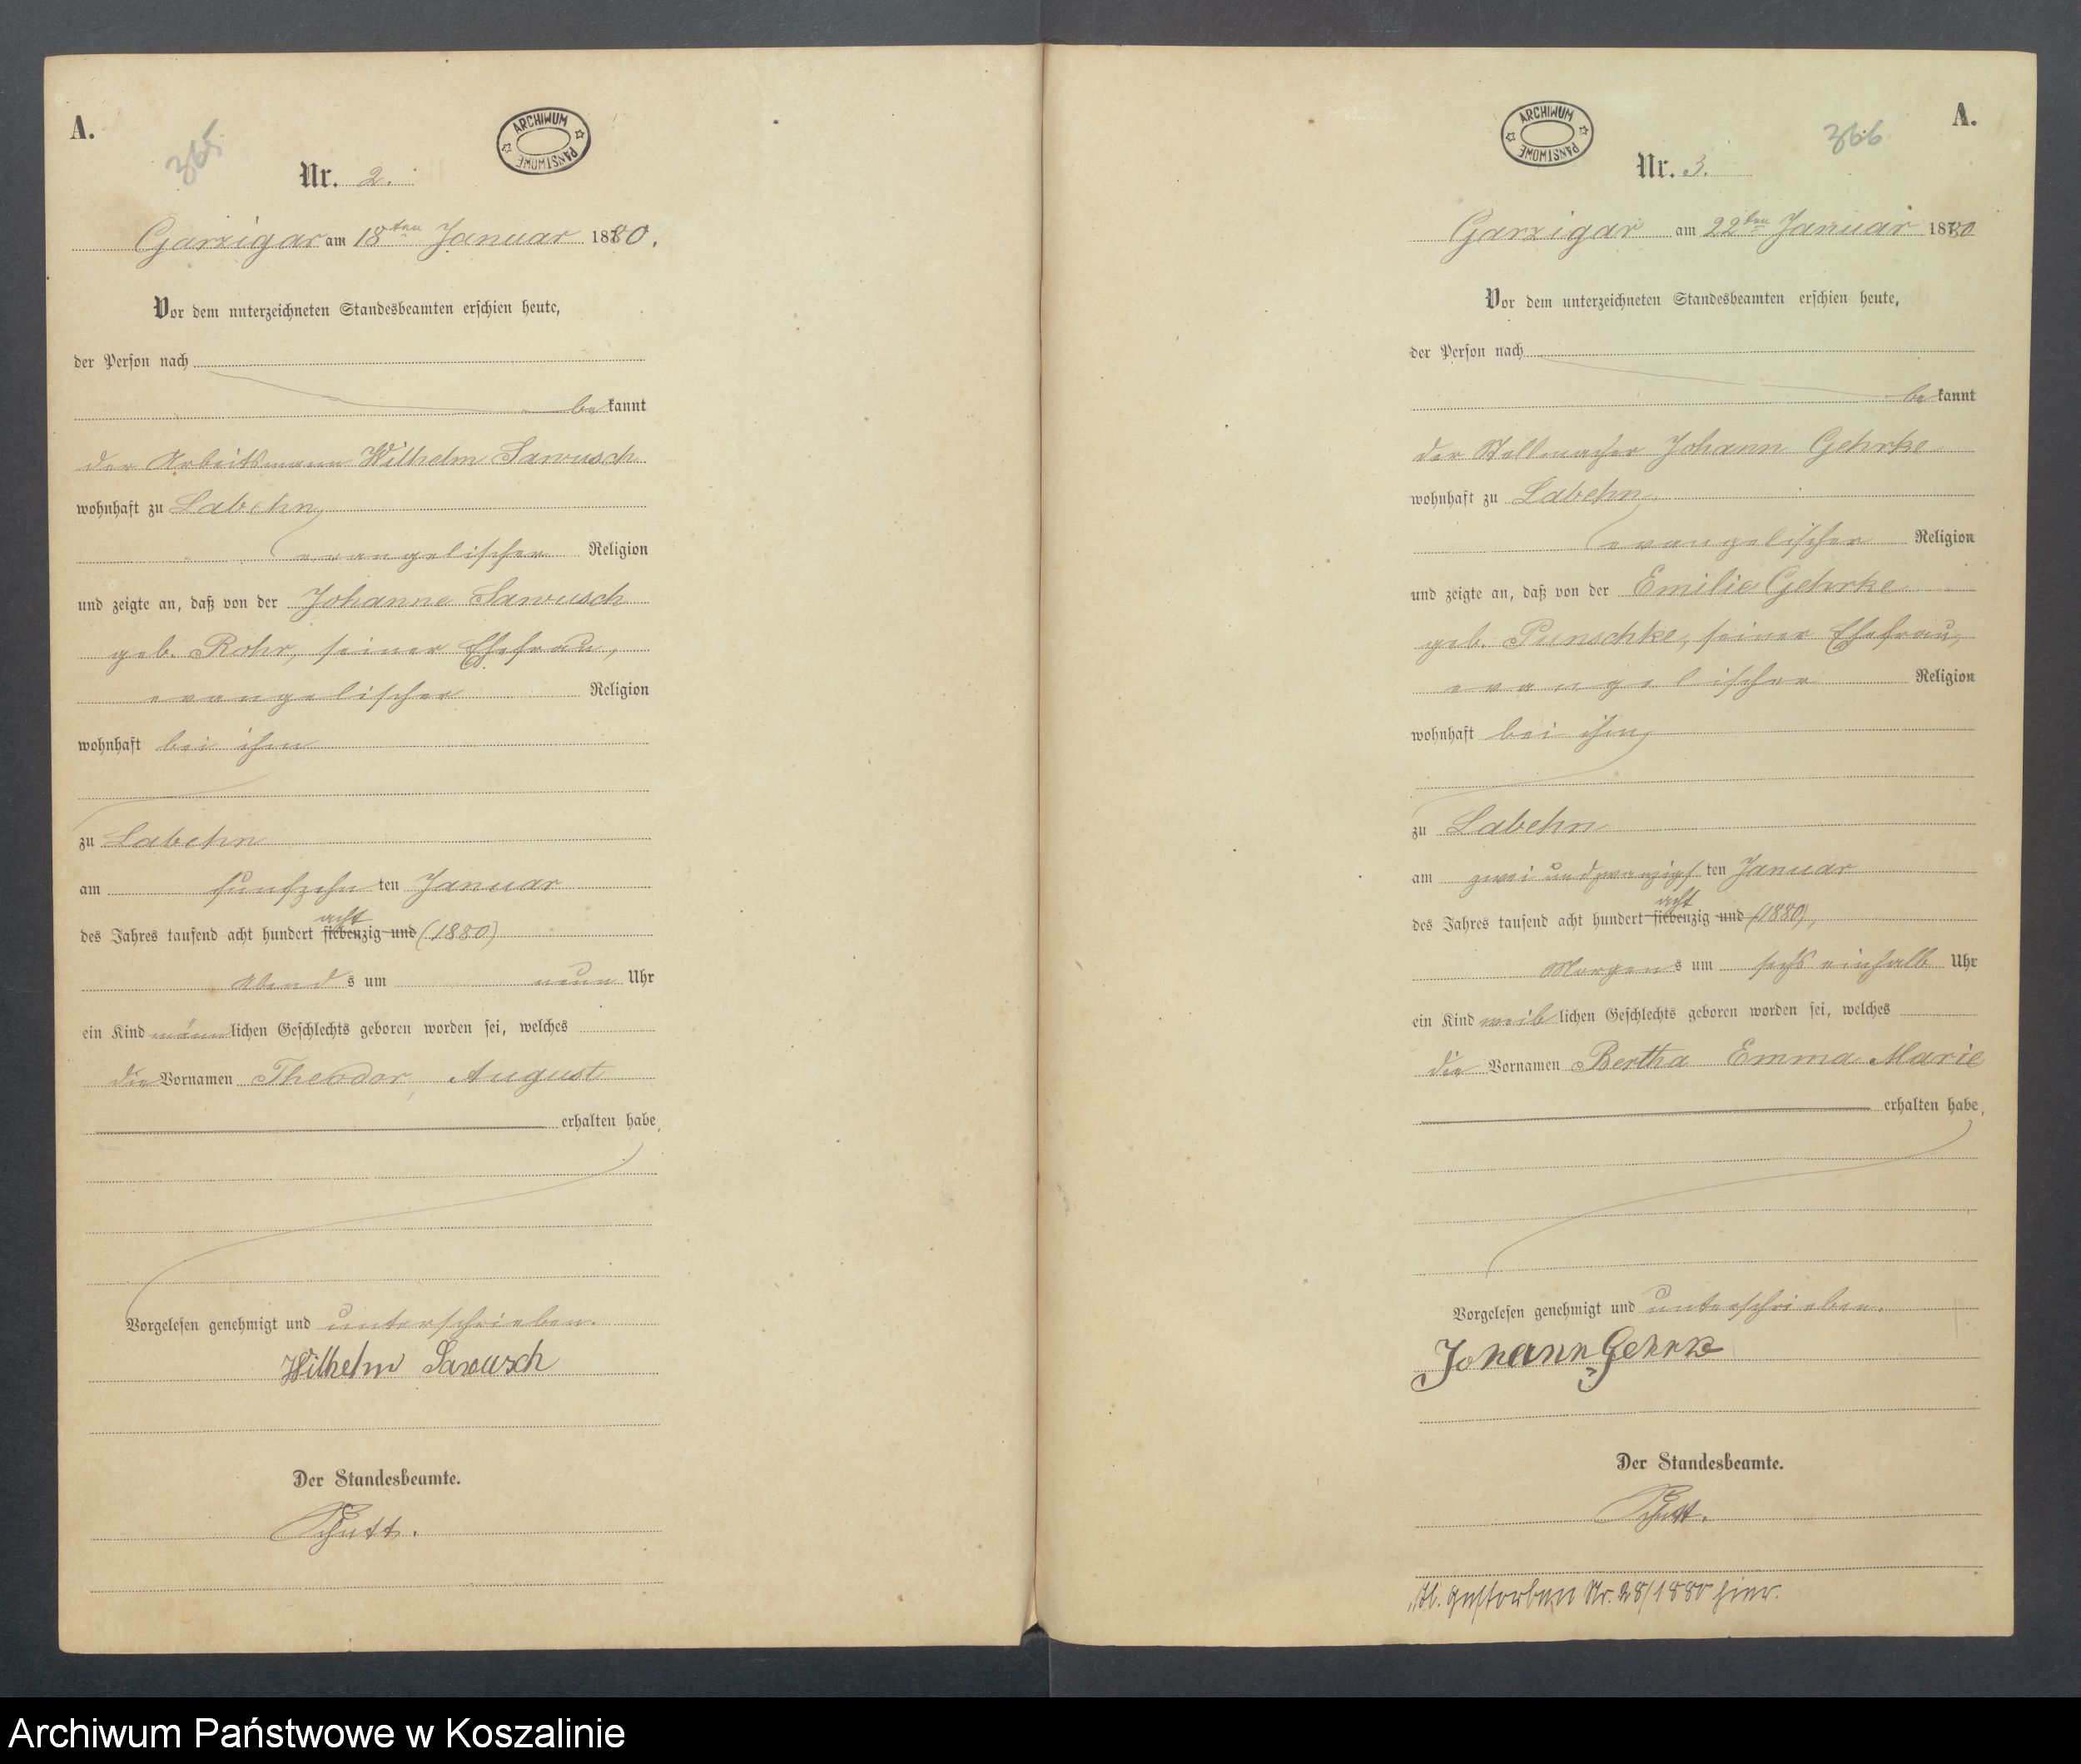 A.
365
ARCHIWUM PAŃSTWOWE
Nr. 2.
Garzigar am 18ten Januar 1880.
Vor dem unterzeichneten Standesbeamten erschien heute,
der Person nach
bekannt
der Arbeitsmann Wilhelm Sawusch
wohnhaft zu Labehn,
evangelischer Religion
und zeigte an, daß von der Johanne Sawusch
geb. Rohr, seiner Ehefrau,
evangelischer Religion
wohnhaft bei ihm
zu Labehn
am fünfzehn ten Januar
acht
des Jahres tausend acht hundert siebenzig und (1880)
Abends um neun Uhr
ein Kind männlichen Geschlechts geboren worden sei, welches
die Vornamen Theodor, August
erhalten habe,
Vorgelesen genehmigt und unterschrieben.
Wilhelm Sawusch
Der Standesbeamte.
A.
366
ARCHIWUM PAŃSTWOWE
Nr. 3.
Garzigar am 22ten Januar 1880
Vor dem unterzeichneten Standesbeamten erschien heute,
der Person nach
bekannt
der Stellmacher Johann Gehrke
wohnhaft zu Labehn,
evangelischer Religion
und zeigte an, daß von der Emilie Gehrke
geb. Punschke, seiner Ehefrau,
evangelischer Religion
wohnhaft bei ihm,
zu Labehn
am zwei und zwanzigs ten Januar
acht
des Jahres tausend acht hundert siebenzig und (1880),
Morgens um sechs einhalb Uhr
ein Kind weiblichen Geschlechts geboren worden sei, welches
die Vornamen Bertha Emma Marie
erhalten habe,
Vorgelesen genehmigt und unterschrieben.
Johann Gehrke
Der Standesbeamte.
gestorben Nr. 28/1880 hier.
Archiwum Państwowe w Koszalinie